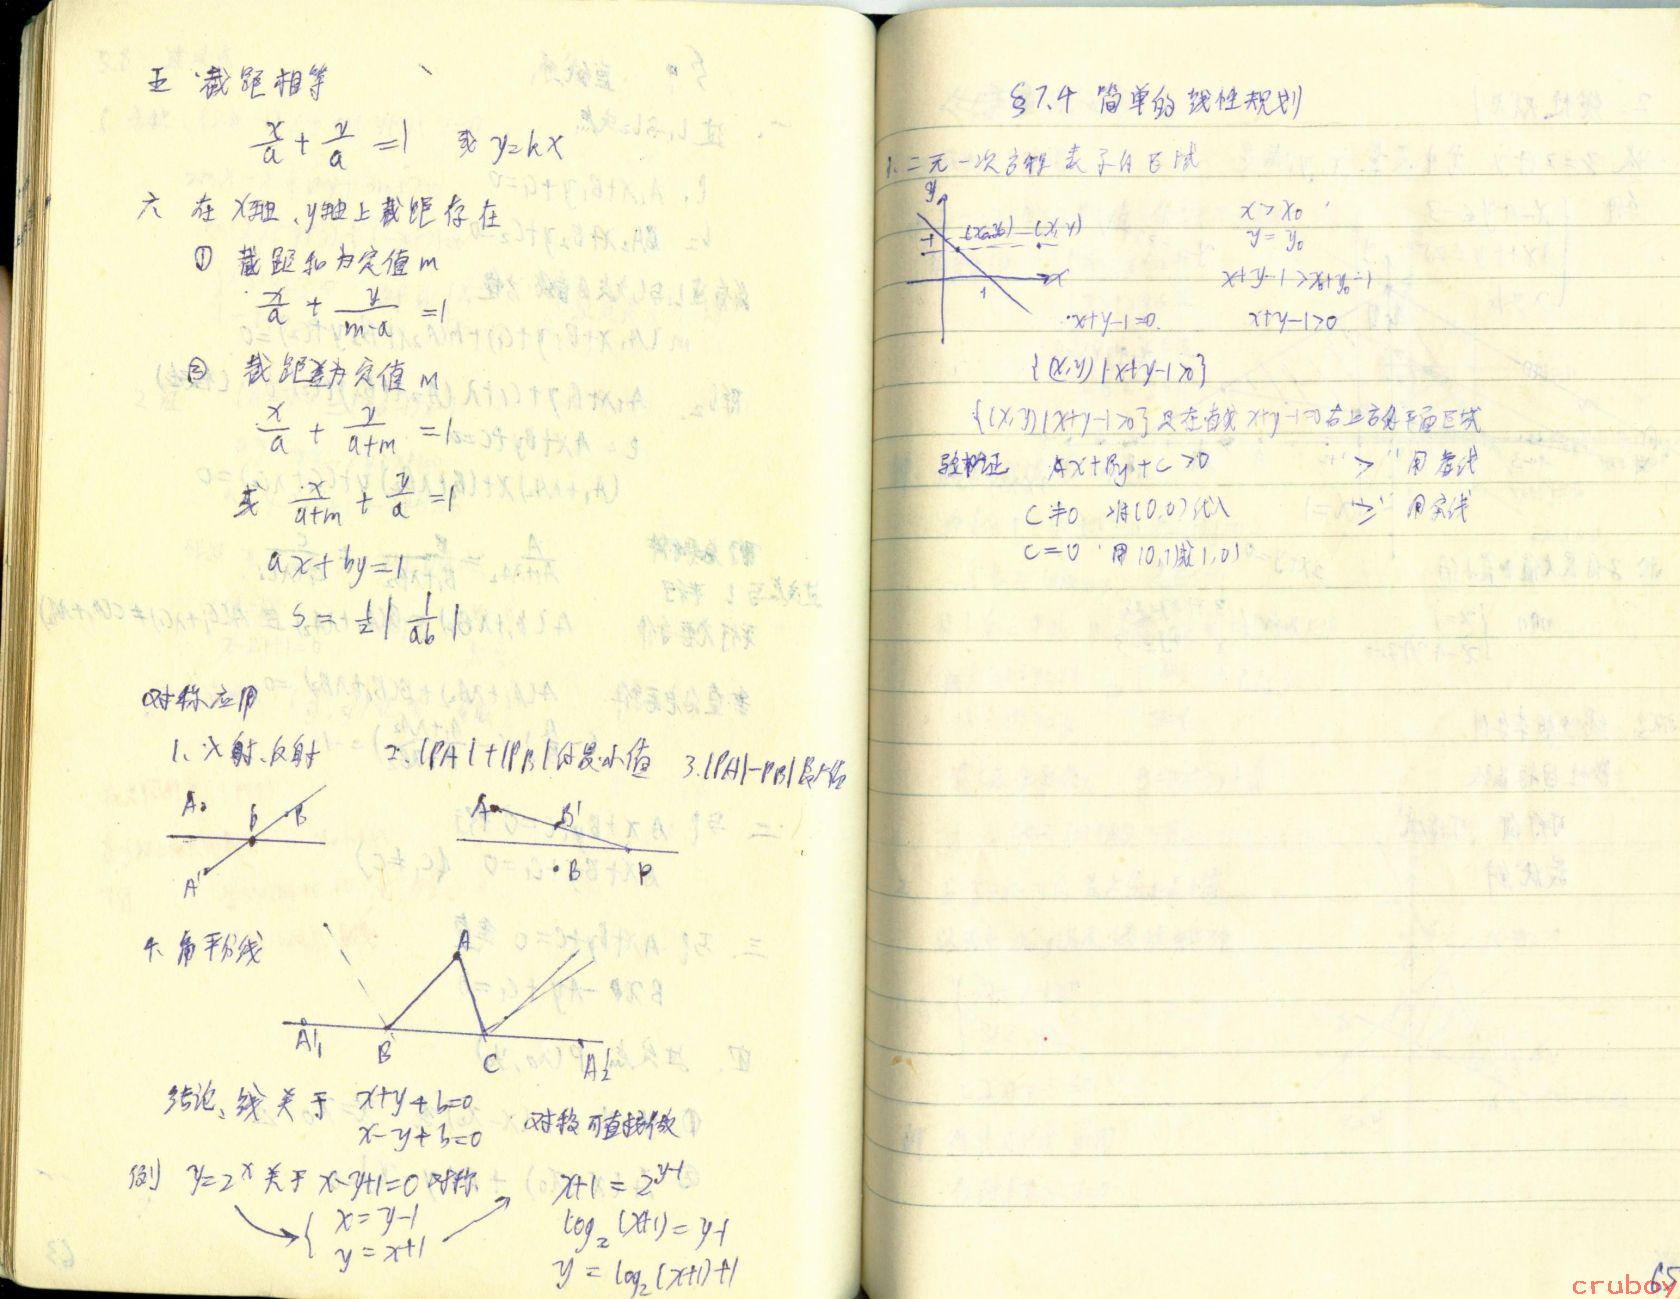 五 截距相等
x/a + y/a = 1 或 y=kx
六 在x轴、y轴上截距存在
① 截距和为定值m
x/a + y/(m-a) = 1
② 截距差为定值m
x/a + y/(a+m) = 1
或 x/(a+m) + y/a = 1
ax+by=1
S = 1/2 |1/ab|
对称应用
1、入射、反射 2. |PA|+|PB|的最小值 3. |PA|-|PB|最大值
A P B
A'
A B'
B P
4、角平分线
A
A'1 B C A'2
结论、线关于 x+y+b=0
x-y+b=0 对称可直接做
例 y=2^x 关于 x-y+1=0 对称
{ x=y-1
y=x+1
x+1=2^(y-1)
log₂(x+1)=y-1
y=log₂(x+1)+1
§7.4 简单的线性规划
1、二元一次方程表示的区域
y
1 (x₀,y₀) (x,y)
x
1
x>x₀
y=y₀
x+y-1>x₀+y₀-1
x+y-1=0 x+y-1>0
{(x,y)|x+y-1>0}
{(x,y)|x+y-1>0}是在直线x+y-1=0右上方的平面区域
验证 Ax+By+C>0 ">" 用虚线
C≠0 将(0,0)代入 "≥" 用实线
C=0 用(0,1)或(1,0)
65
cruboy